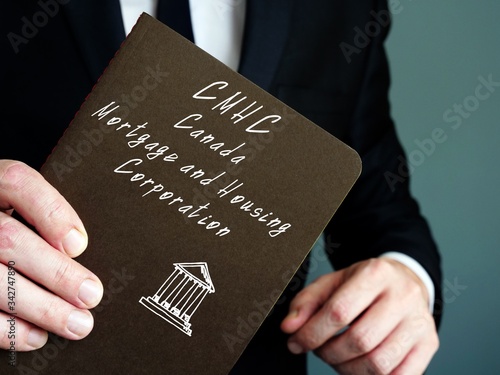 CMHC
Canada
Mortgage and Housing
Corporation
Adobe Stock | #342747850